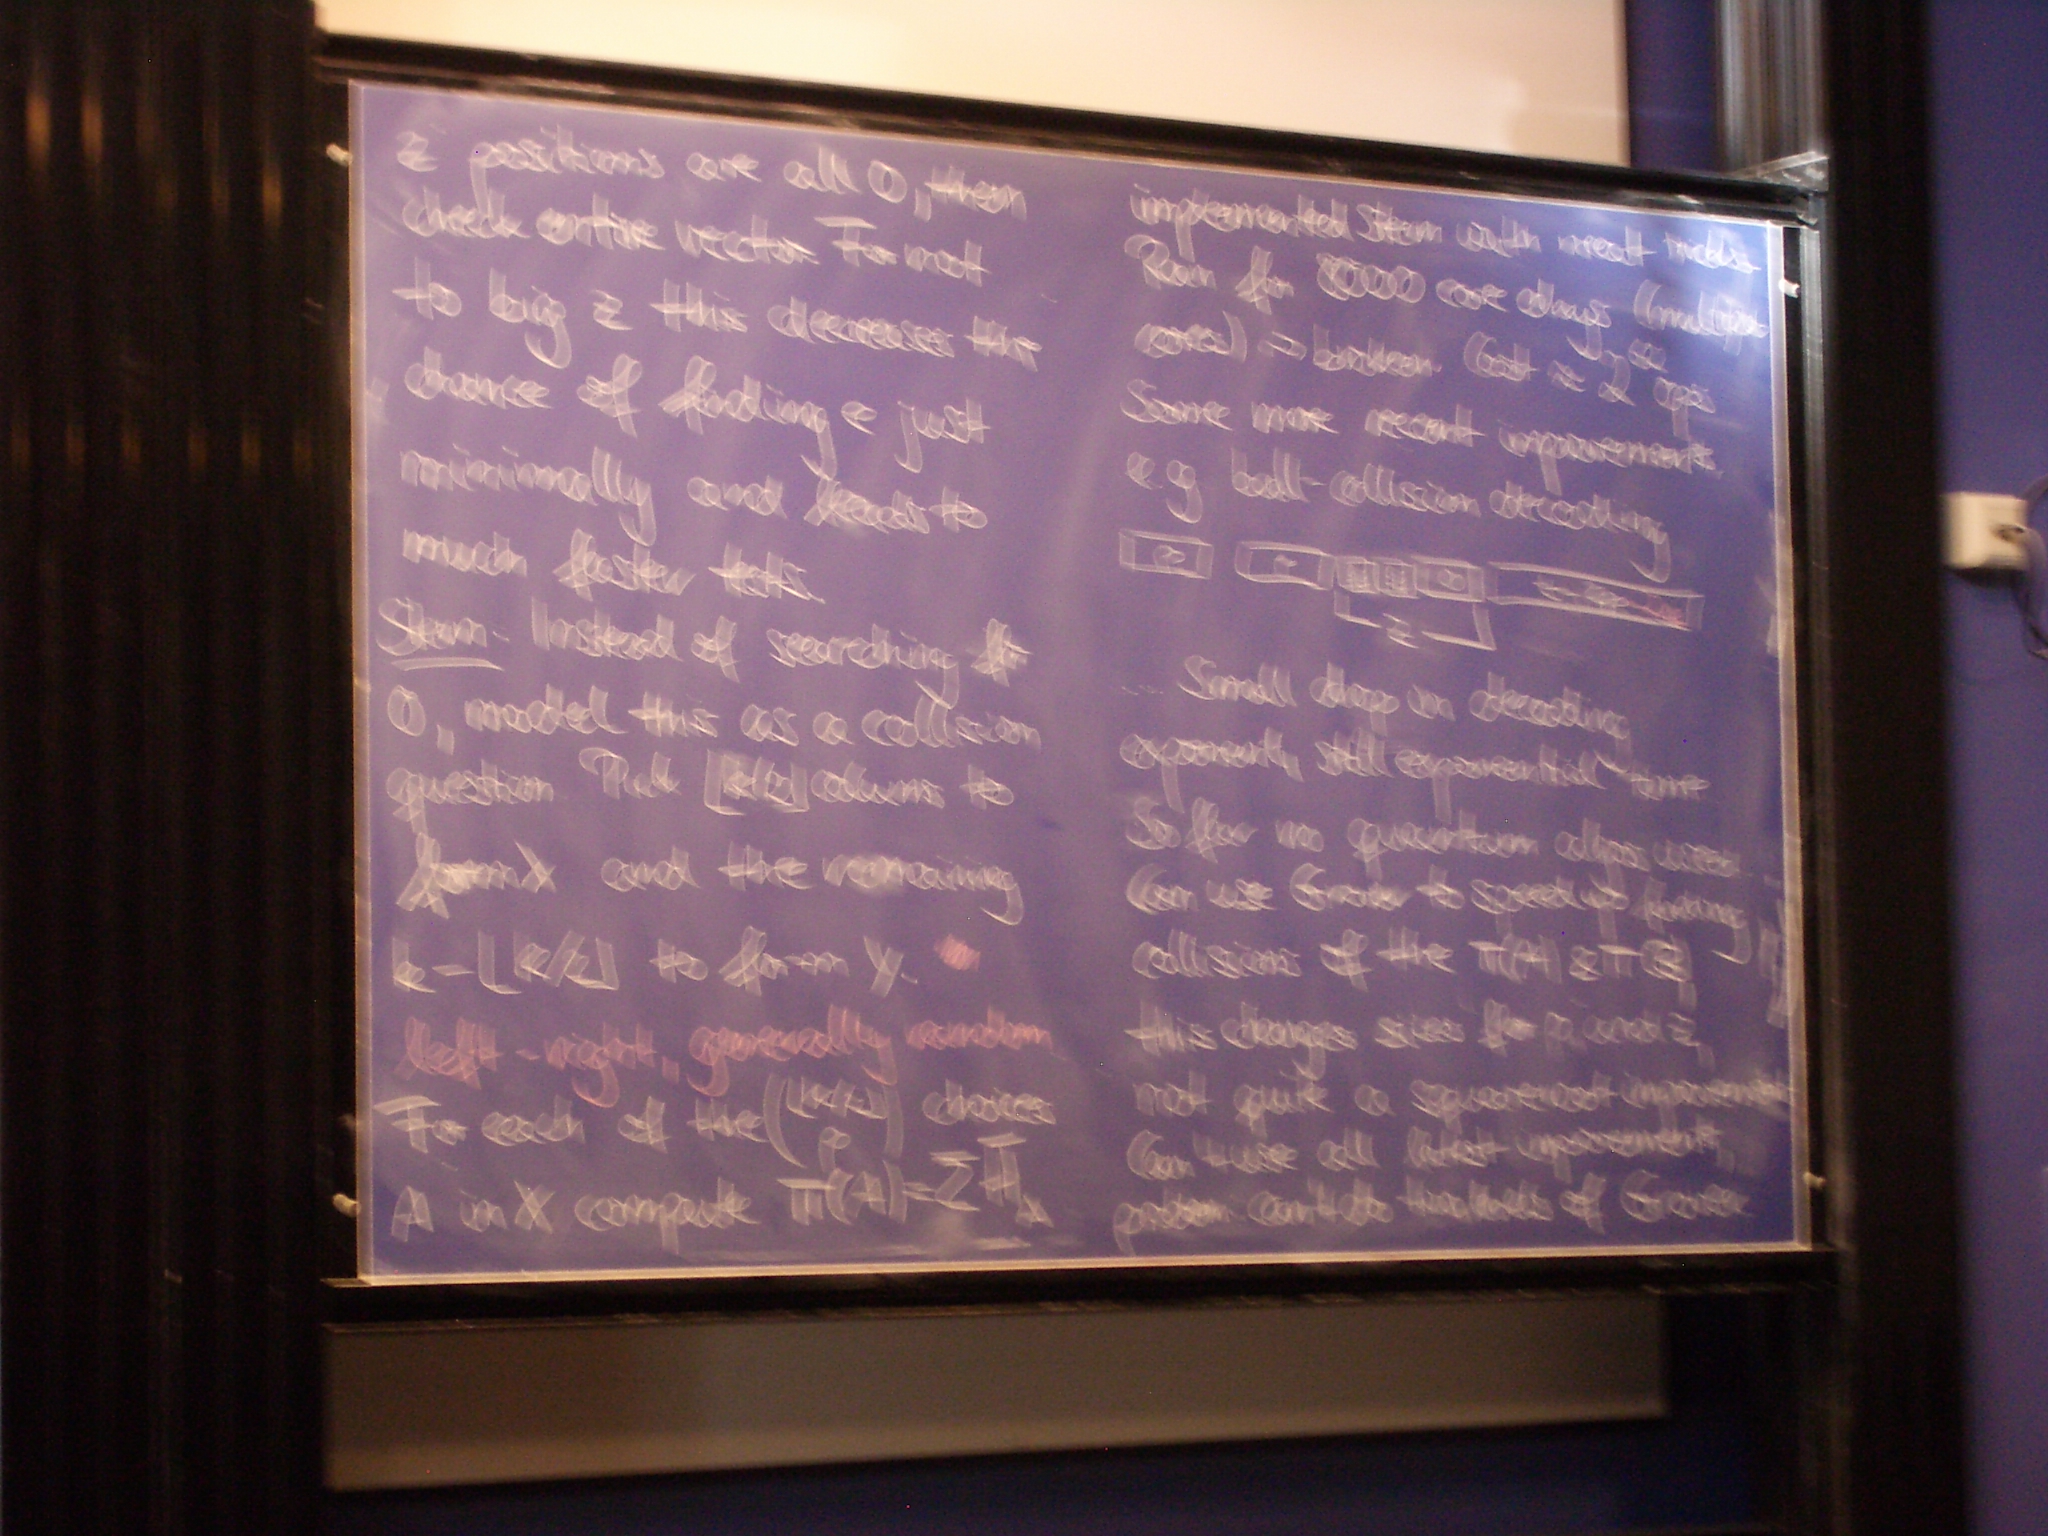 z positions are all 0, then
check entire vector. For not
to big z this decreases the
chance of finding e just
minimally and leads to
much faster tests.
Stern: Instead of searching for
0, model this as a collision
question. Pick ⌊k/2⌋ columns to
form X and the remaining
k-⌊k/2⌋ to form Y.
left-right, generally random
For each of the (⌊k/2⌋ p) choices
A in X compute π(A)=Σ
implemented Stern with most tricks.
Ran for 8000 core days (multiple
cores) → broken. Cost ≈ 2 ops
Some more recent improvements
e.g. ball-collision decoding
z
Small drop in decoding
exponent, still exponential time
So far no quantum algos
Can use Grover to speed up finding
collisions of the π(A) & π(B)
this changes sizes for p and z,
not quite a squareroot improvement
Can't use all latest improvements,
problem can't do two levels of Grover